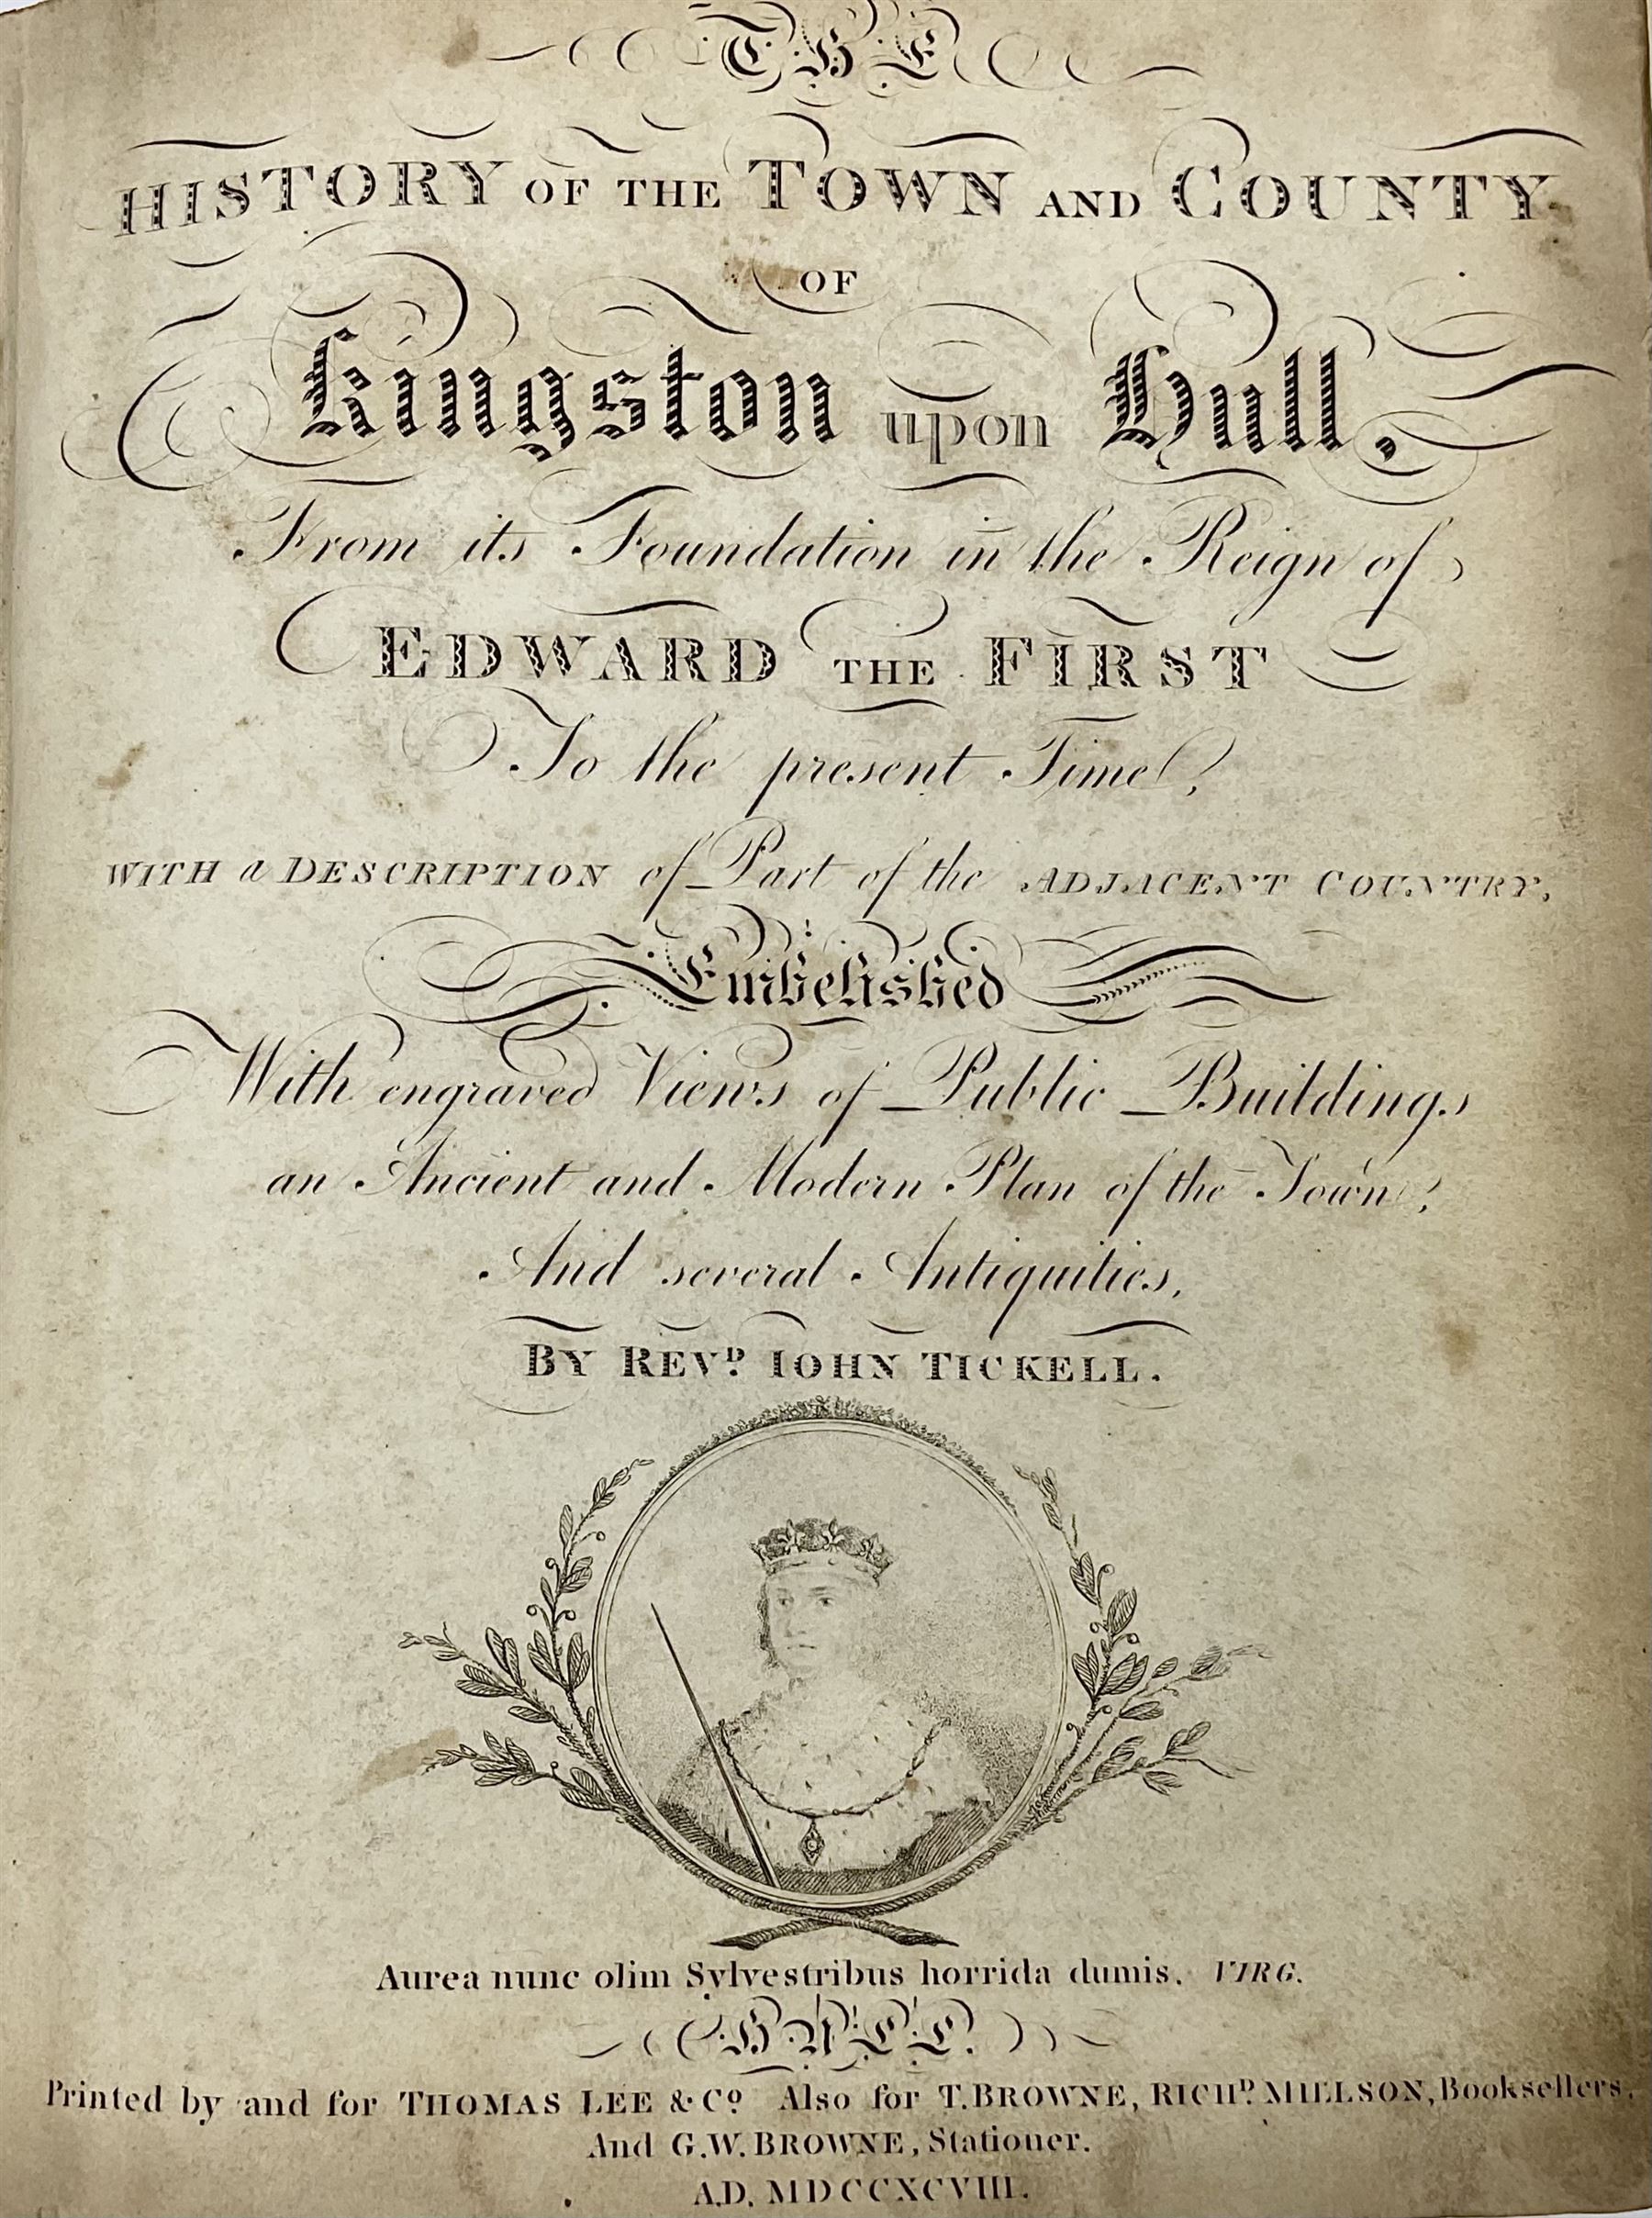 THE
HISTORY OF THE TOWN AND COUNTY
OF
Kingston upon Hull,
From its Foundation in the Reign of
EDWARD THE FIRST
To the present Time,
WITH a DESCRIPTION of Part of the ADJACENT COUNTRY,
Embelished
With engraved Views of Public Buildings
an Ancient and Modern Plan of the Town,
And several Antiquities,
BY REVD. IOHN TICKELL.
Aurea nunc olim Sylvestribus horrida dumis. VIRG.
HULL.
Printed by and for THOMAS LEE & Co. Also for T. BROWNE, RICHD. MILLSON, Booksellers,
And G.W. BROWNE, Stationer.
A.D. MDCCXCVIII.